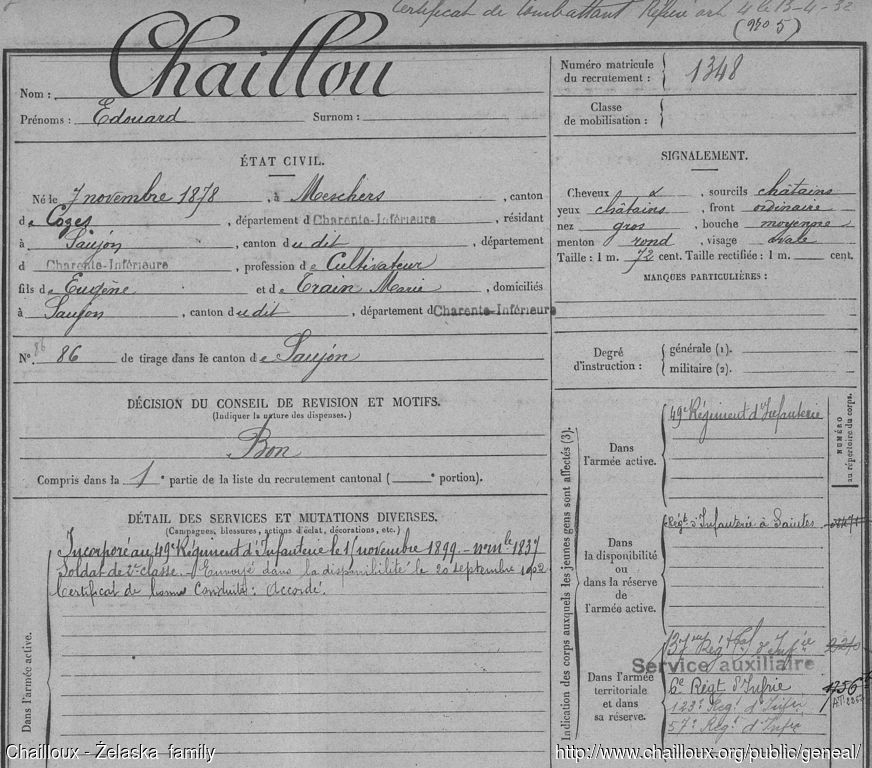 Certificat de Combattant Référé art 4 le 13-4-32
(930 5)
Nom : Chaillou
Prénoms : Edouard Surnom :
ÉTAT CIVIL.
Né le 7 novembre 1878, à Meschers, canton
de Cozes, département d Charente-Inférieure, résidant
à Saujon, canton du dit, département
d Charente-Inférieure, profession de Cultivateur
fils de Eugène et de Train Marie, domiciliés
à Saujon, canton du dit, département d Charente-Inférieure
N° 86 86 de tirage dans le canton de Saujon
DÉCISION DU CONSEIL DE REVISION ET MOTIFS.
(Indiquer la nature des dispenses.)
Bon
Compris dans la 1e partie de la liste du recrutement cantonal ( e portion).
DÉTAIL DES SERVICES ET MUTATIONS DIVERSES.
(Campagnes, blessures, actions d'éclat, décorations, etc.)
Dans l'armée active.
Incorporé au 49e Régiment d'Infanterie le 15 novembre 1899. – n° mle 1837
Soldat de 2e classe. Envoyé dans la disponibilité le 20 septembre 1902
Certificat de bonne Conduite : Accordé.
Numéro matricule
du recrutement : 1348
Classe
de mobilisation :
SIGNALEMENT.
Cheveux &, sourcils châtains
yeux châtains, front ordinaire
nez gros, bouche moyenne
menton rond, visage ovale
Taille : 1 m. 72 cent. Taille rectifiée : 1 m. cent.
MARQUES PARTICULIÈRES :
Degré
d'instruction :
générale (1).
militaire (2).
Indication des corps auxquels les jeunes gens sont affectés (3).
NUMÉRO
au répertoire du corps.
Dans
l'armée active.
49e Régiment d'Infanterie
Dans
la disponibilité
ou
dans la réserve
de
l'armée active.
Régt d'Infanterie à Saintes
Dans l'armée
territoriale
et dans
sa réserve.
137me Régt tal d'Infie
Service auxiliaire
6e Régt d'Infrie
123e Regt d'Infrie
57e Regt d'Infrie
Chailloux - Żelaska family
http://www.chailloux.org/public/geneal/